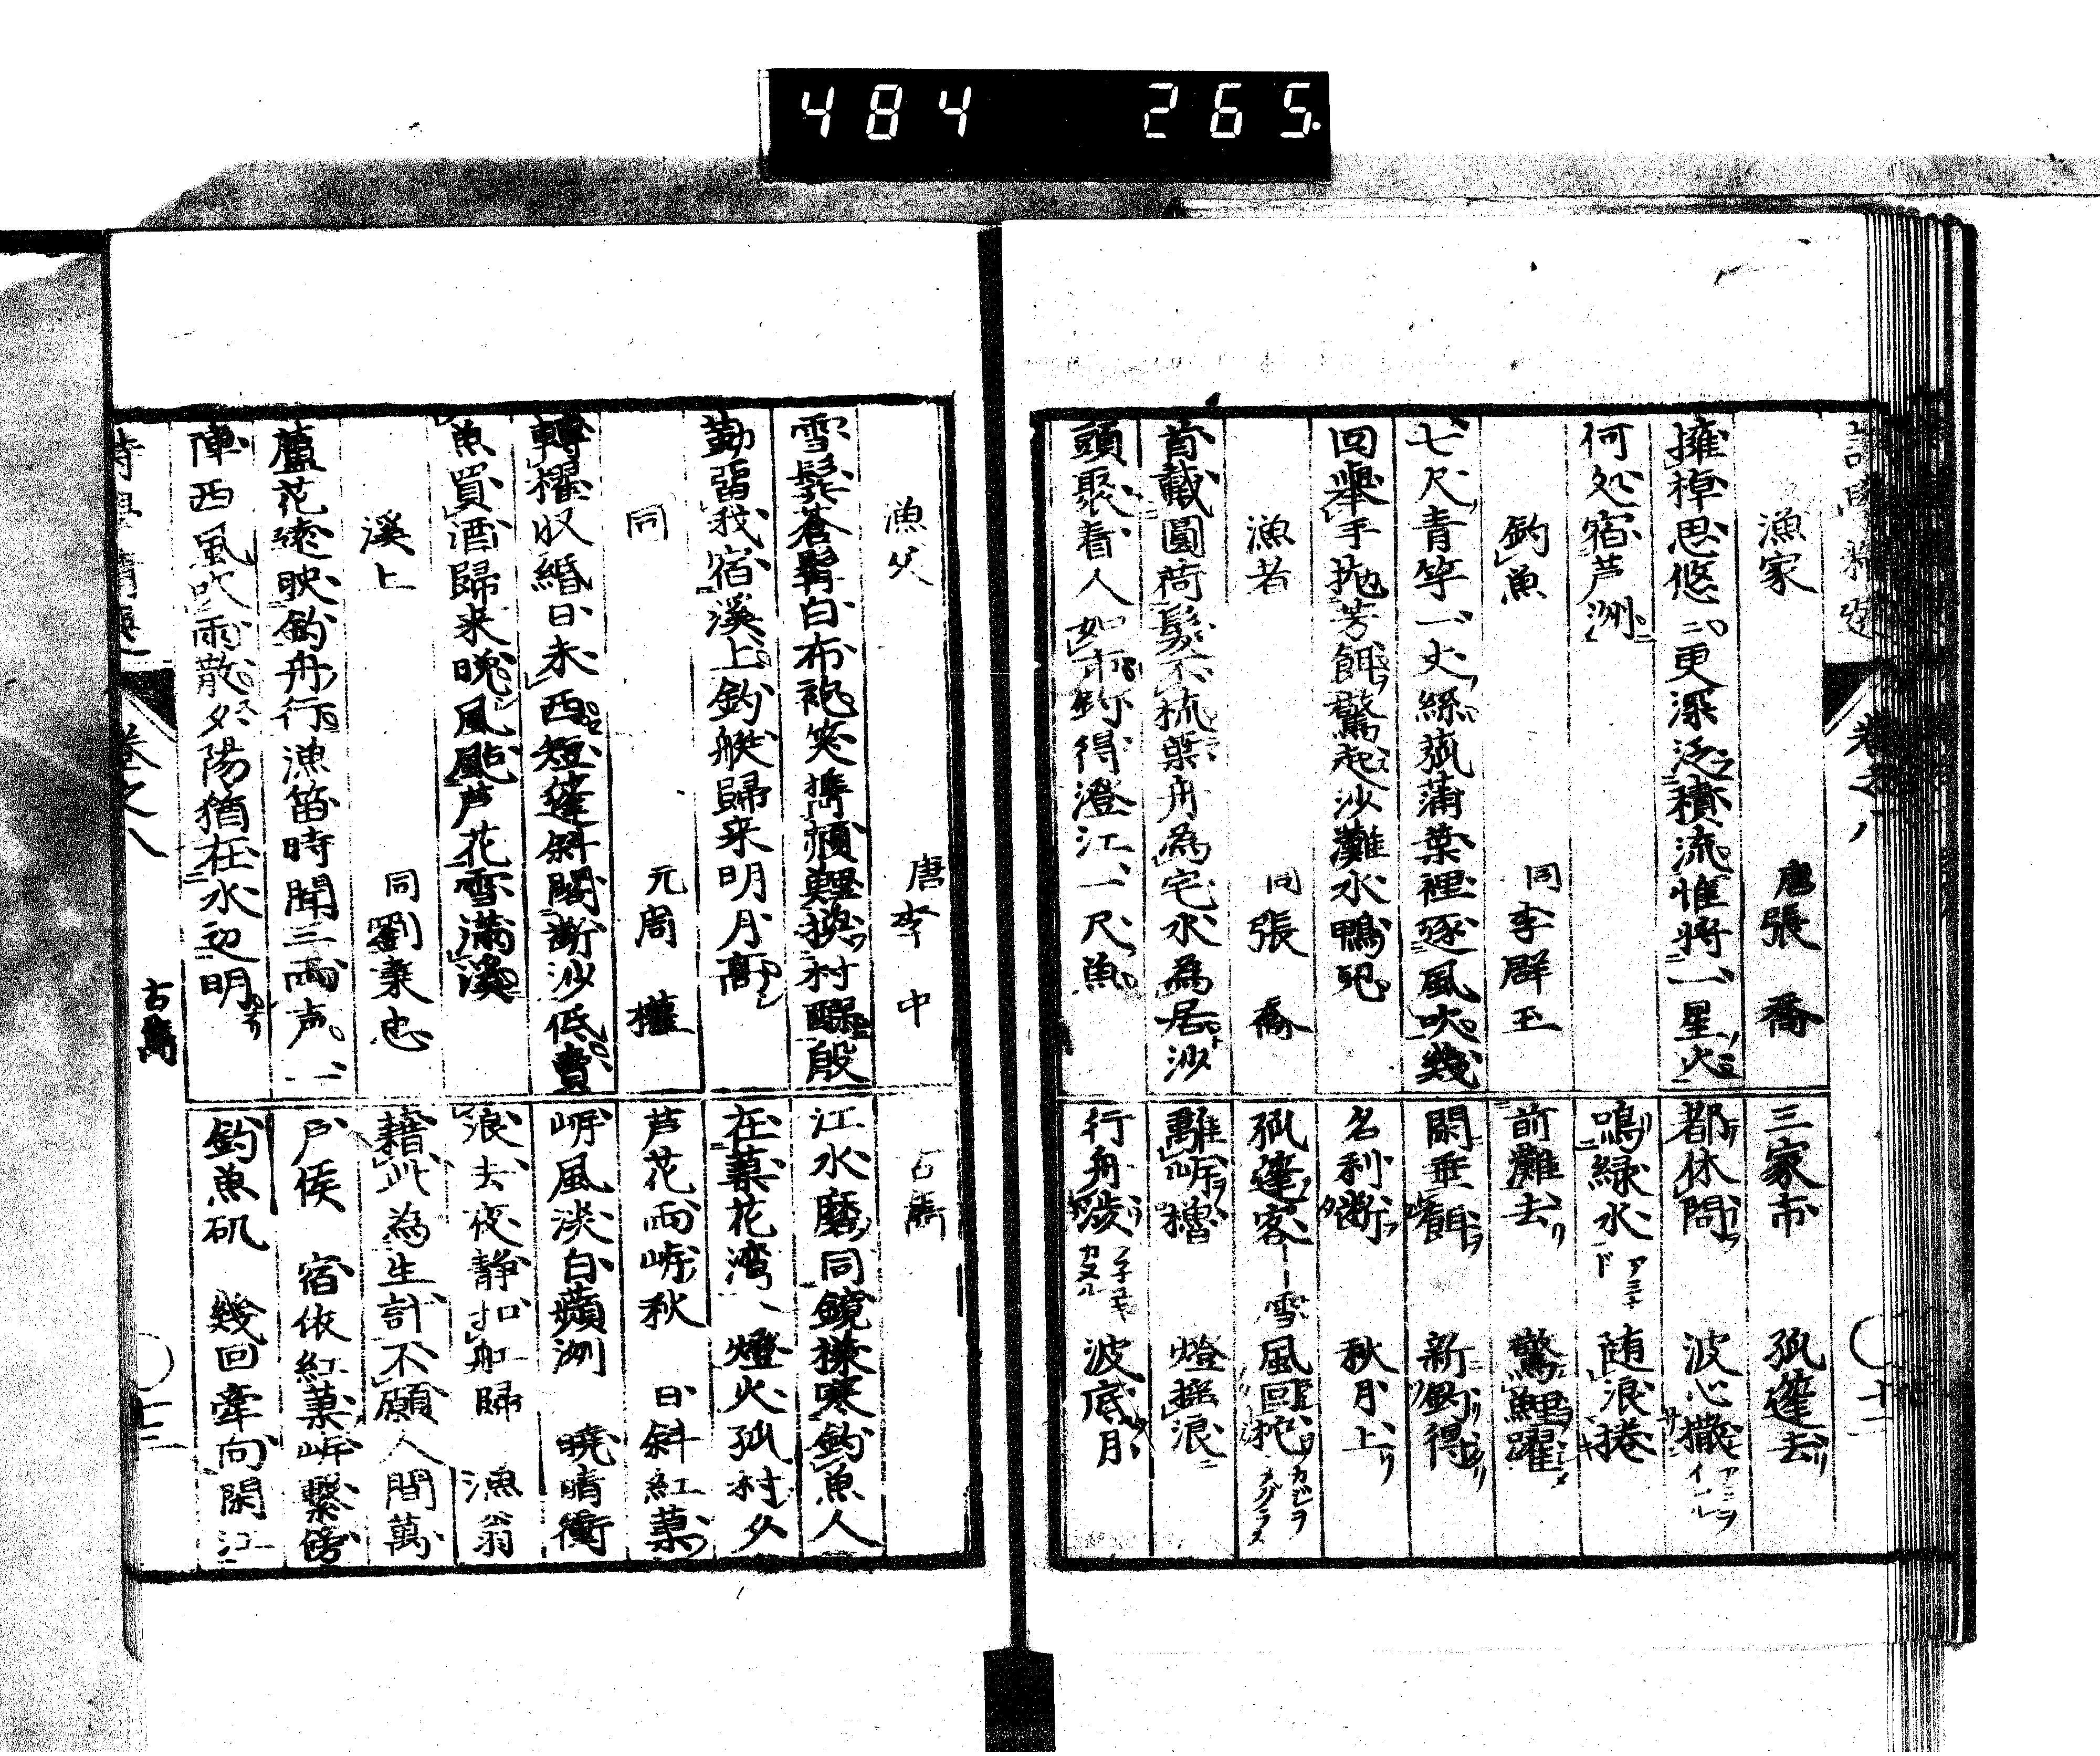 484 265.
漁家 唐張喬
擁棹思悠〻更深泛積流惟将一星火
何処宿芦洲
釣魚 同李群玉
七尺青竿一丈絲菰蒲葉裡逐風吹幾
回舉手抛芳餌驚起沙灘水鴨児
漁者 同張喬
首戴圓荷髮不梳葉舟為宅水為居沙
頭聚看人如市釣得澄江一尺魚
三家市 孤蓬去
都休問 波心撒
鳴緑水 随浪捲
前灘去 驚鯉躍
閑垂餌 新釣得
名利断 秋月上
孤蓬客 雪風回柁
離岸櫓 燈揺浪
行舟渉 波底月
卷之八
漁父 唐李中
雪鬢蒼髯白布袍笑携赬鯉換村醪殷
勤畱我宿溪上釣艇歸来明月高
同 元周權
轉櫂収緡日未西短蓬斜閣断沙低賣
魚買酒歸来晚風颭芦花雪滿溪
溪上 同劉秉忠
蘆花遠映釣舟行漁笛時聞三两声一
陣西風吹雨散夕陽猶在水边明
江水磨同鏡揉寒釣魚人
在蓼花湾 燈火孤村夕
芦花两岸秋 日斜紅蓼
岸風淡白蘋洲 曉晴衝
浪去夜静扣舡歸 漁翁
藉此為生計不願人間萬
戶侯 宿依紅蓼岸繫傍
釣魚矶 幾回牽向閑江
卷之八